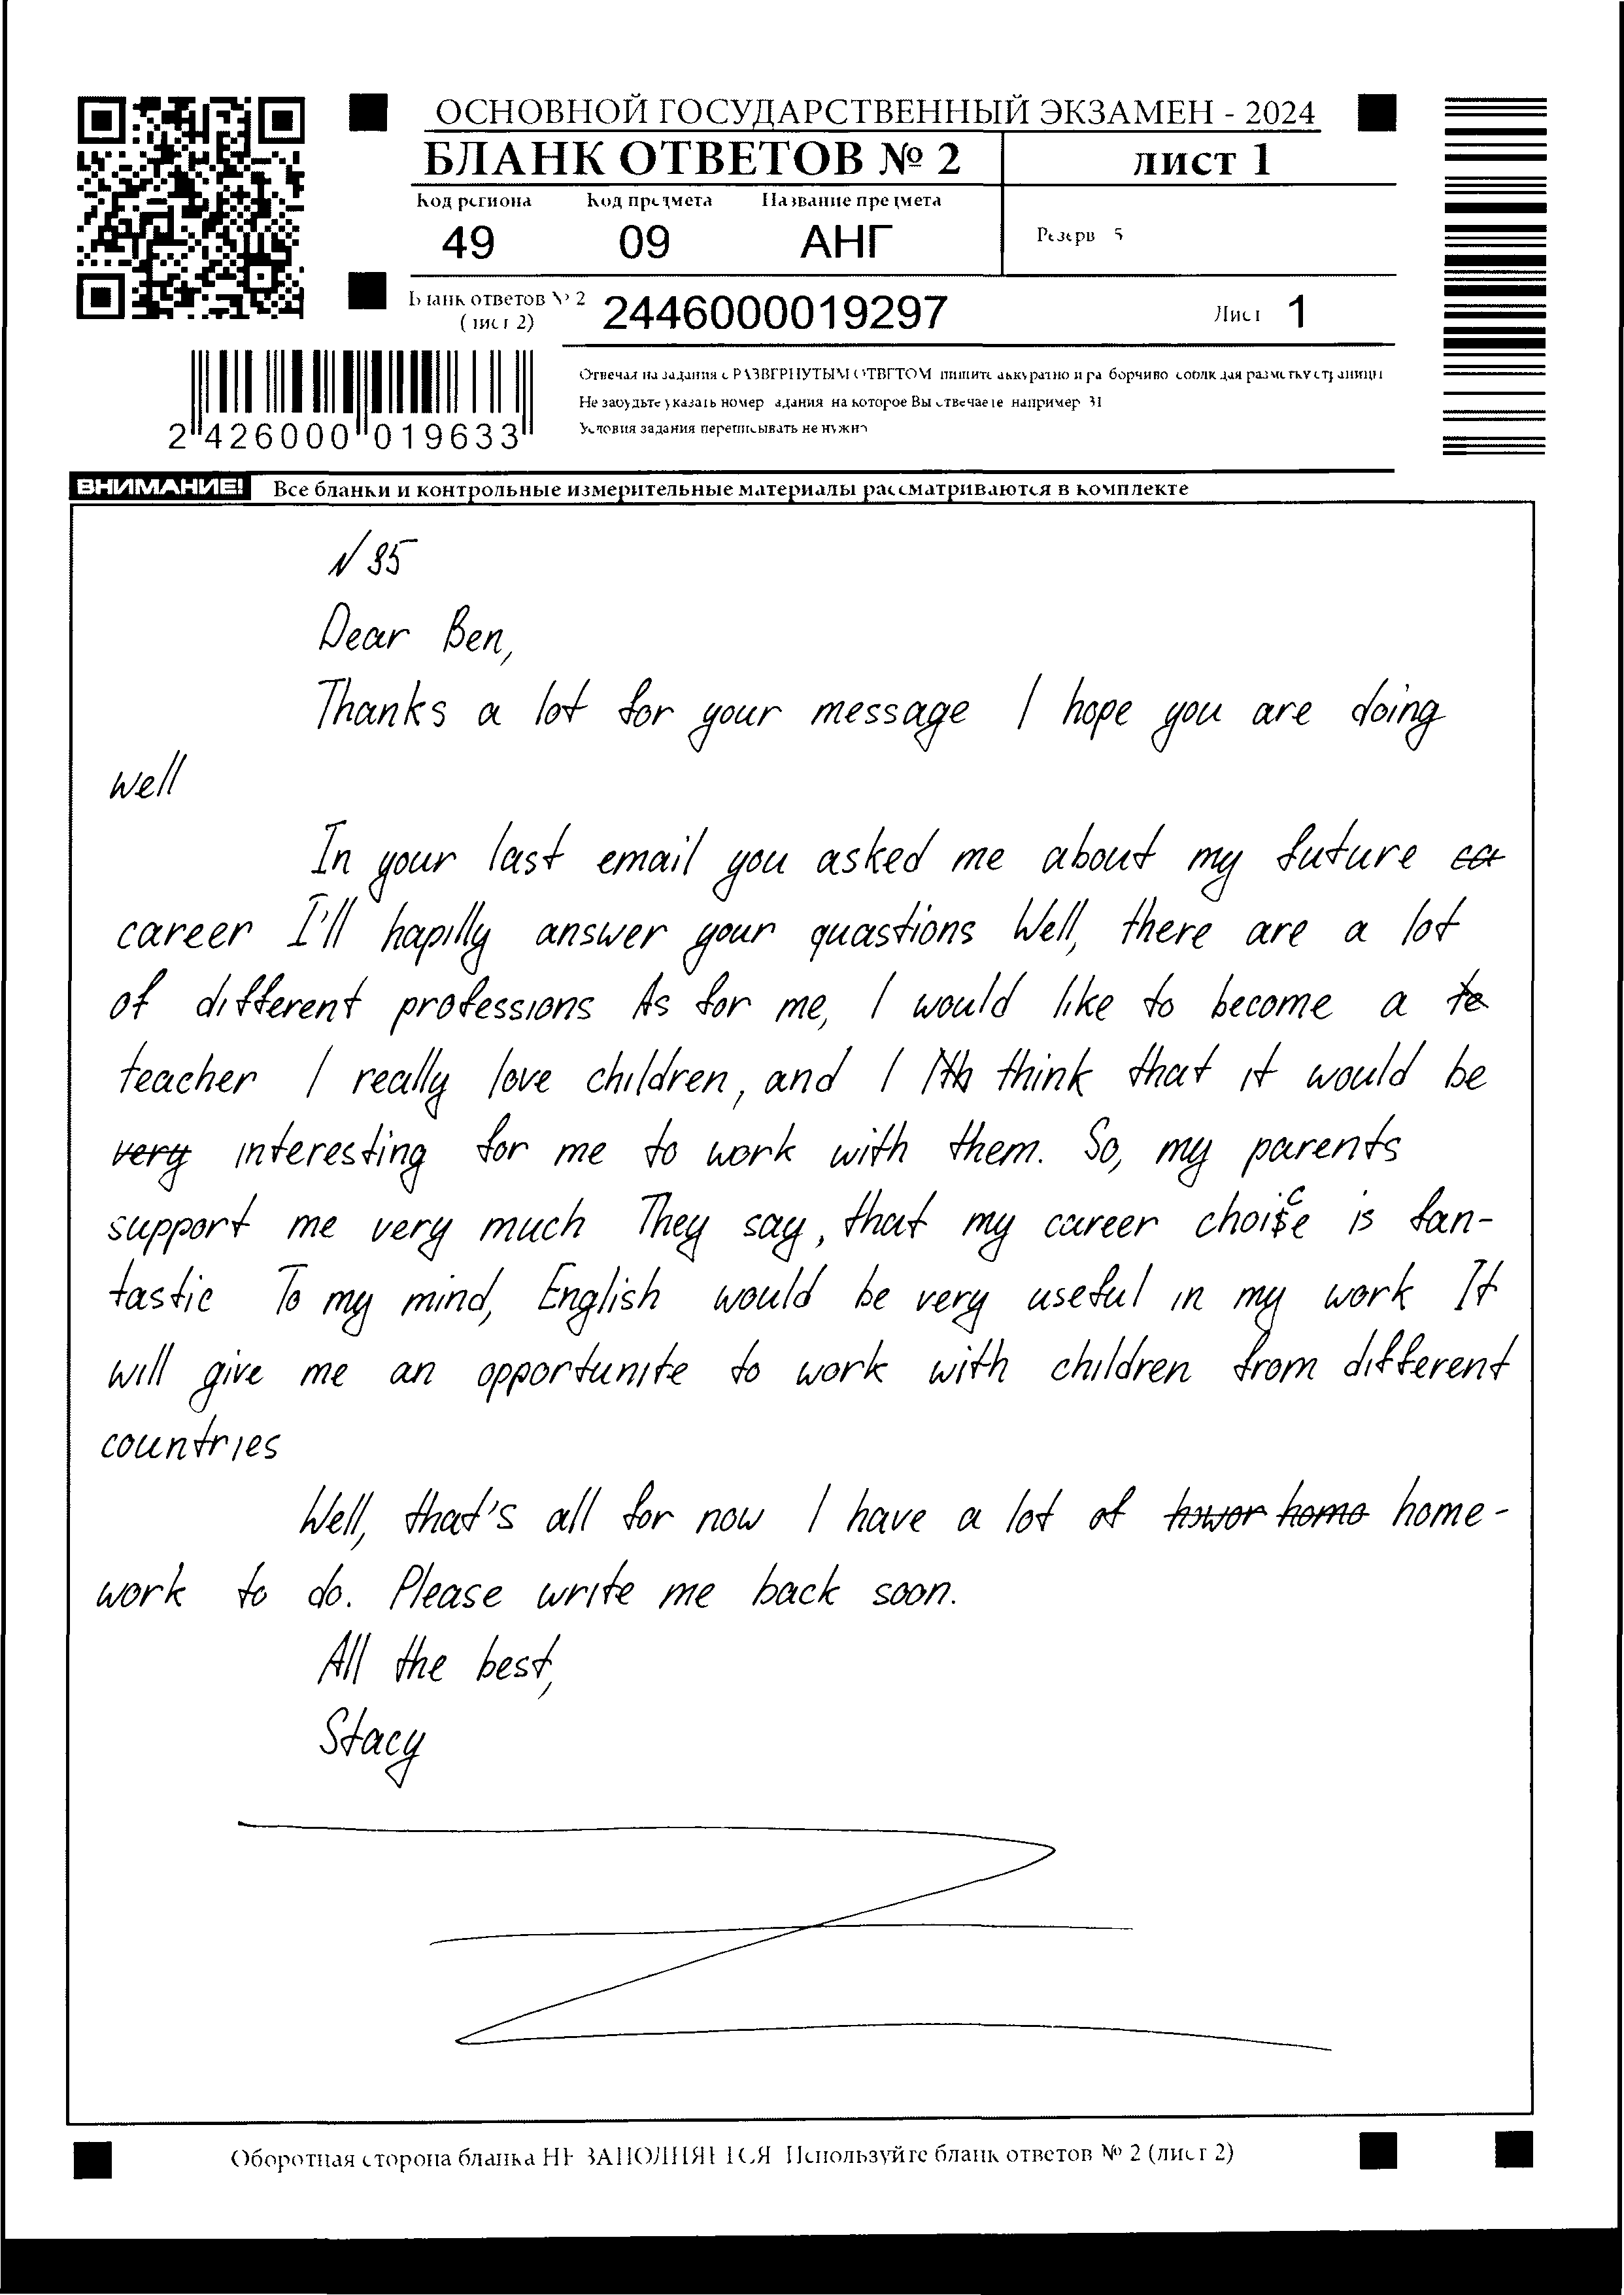 ОСНОВНОЙ ГОСУДАРСТВЕННЫЙ ЭКЗАМЕН - 2024
БЛАНК ОТВЕТОВ № 2
лист 1
Код региона Код предмета Название предмета
49 09 АНГ
Резерв 5
Бланк ответов № 2
(лист 2)
2446000019297
Лист 1
2 426000 019633
Отвечая на задания с РАЗВЕРНУТЫМ ОТВЕТОМ пишите аккуратно и разборчиво соблюдая разметку страницы
Не забудьте указать номер задания на которое Вы отвечаете например 31
Условия задания переписывать не нужно
ВНИМАНИЕ! Все бланки и контрольные измерительные материалы рассматриваются в комплекте
N 35
Dear Ben,
Thanks a lot for your message I hope you are doing
well
In your last email you asked me about my future ca
career I'll hapilly answer your quastions Well, there are a lot
of different professions As for me, I would like to become a te
teacher I really love children, and I th think that it would be
very interesting for me to work with them. So, my parents
support me very much They say, that my career choice is fan-
tastic To my mind, English would be very useful in my work It
will give me an opportunite to work with children from different
countries
Well, that's all for now I have a lot of homo home-
work to do. Please write me back soon.
All the best,
Stacy
Оборотная сторона бланка НЕ ЗАПОЛНЯЕТСЯ Используйте бланк ответов № 2 (лист 2)